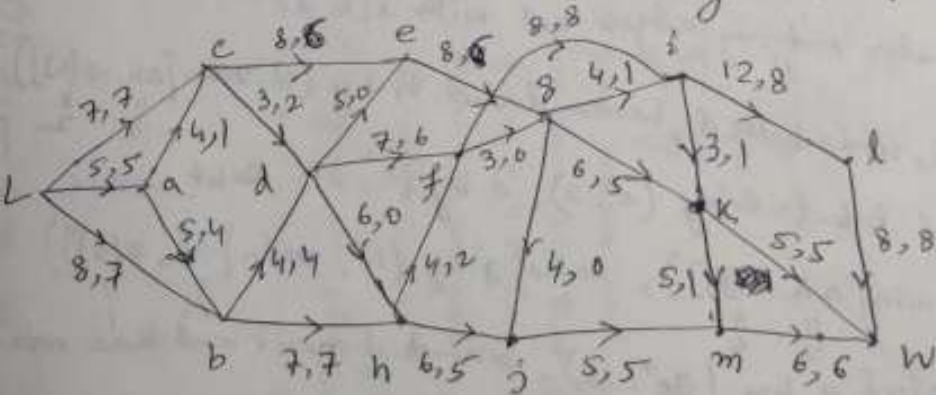 8,8
c 8,6 e 8,6 i 12,8
7,7 3,2 5,0 g 4,1
4,1 7,6 3,0 3,1 l
L 5,5 a d f 6,5
5,4 6,0 K 5,5
8,7 4,4 4,2 4,0 5,1 8,8
b 7,7 h 6,5 j 5,5 m 6,6 W